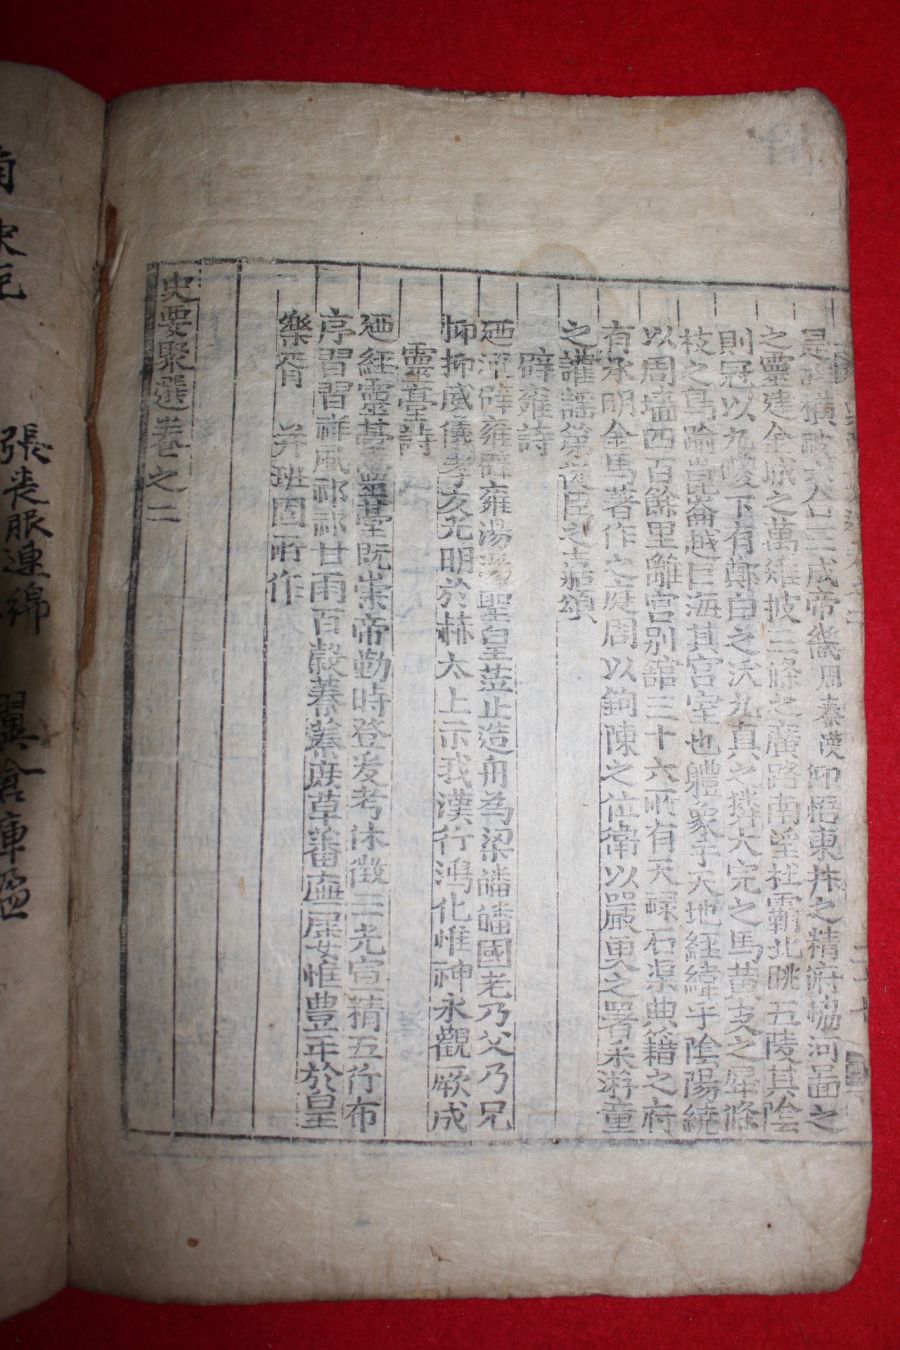 是故橫被六合三成帝畿周秦漢仰悟東井之精府協河啚之
之靈建金城之萬雉披三條之廣路南望杜霸北眺五陵其陰
則冠以九嵕下有鄭白之沃九真之獜大宛之馬黃支之犀條
枝之鳥踰崑崙越巨海其宮室也軆象乎天地經緯乎陰陽繞
以周墻四百餘里離宮別舘三十六所有天祿石渠典籍之府
有承明金馬著作之庭周以鉤陳之位衛以嚴更之署采游童
之讙謠第從臣之嘉頌
辟雍詩
廼流辟雍辟雍湯湯聖皇莅止造舟為梁皤皤國老乃父乃兄
抑抑威儀孝友光明於赫太上示我漢行鴻化惟神永觀厥成
靈臺詩
廼經靈臺靈臺旣崇帝勤時登爰考休徵三光宣精五行布
序習習祥風祁祁甘雨百穀蓁蓁庶草蕃廡屢惟豊年於皇
樂胥 并班固所作
史要聚選卷之二
張喪服連綿 翼倉庫盈